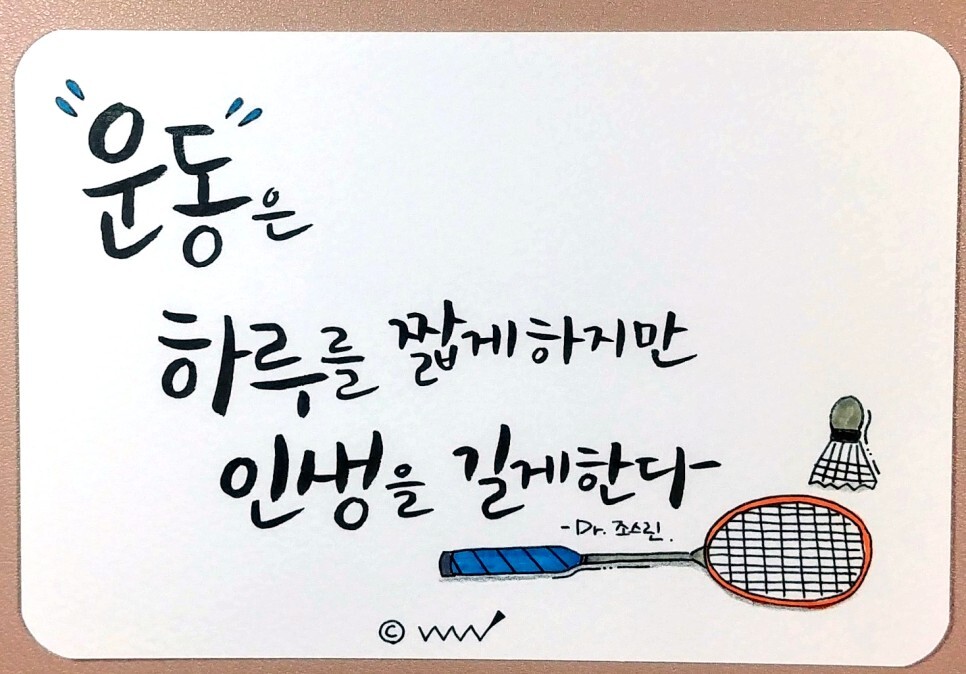 "운동"은
하루를 짧게하지만
인생을 길게한다
-Dr. 조스린.